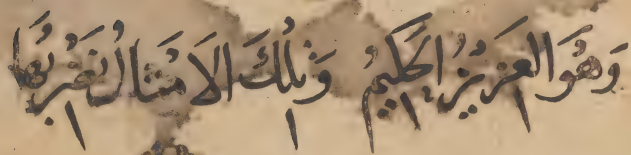 وَهُوَ العَزِيزُ الحَكِيمُ وَتِلْكَ الاَمْثَالُ نَضْرِبُهَا